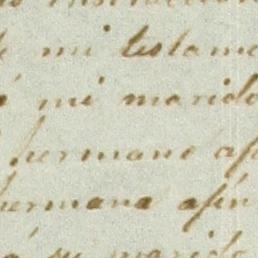 mi testame
mi marido
hermano afi
hermana afin
á su marido